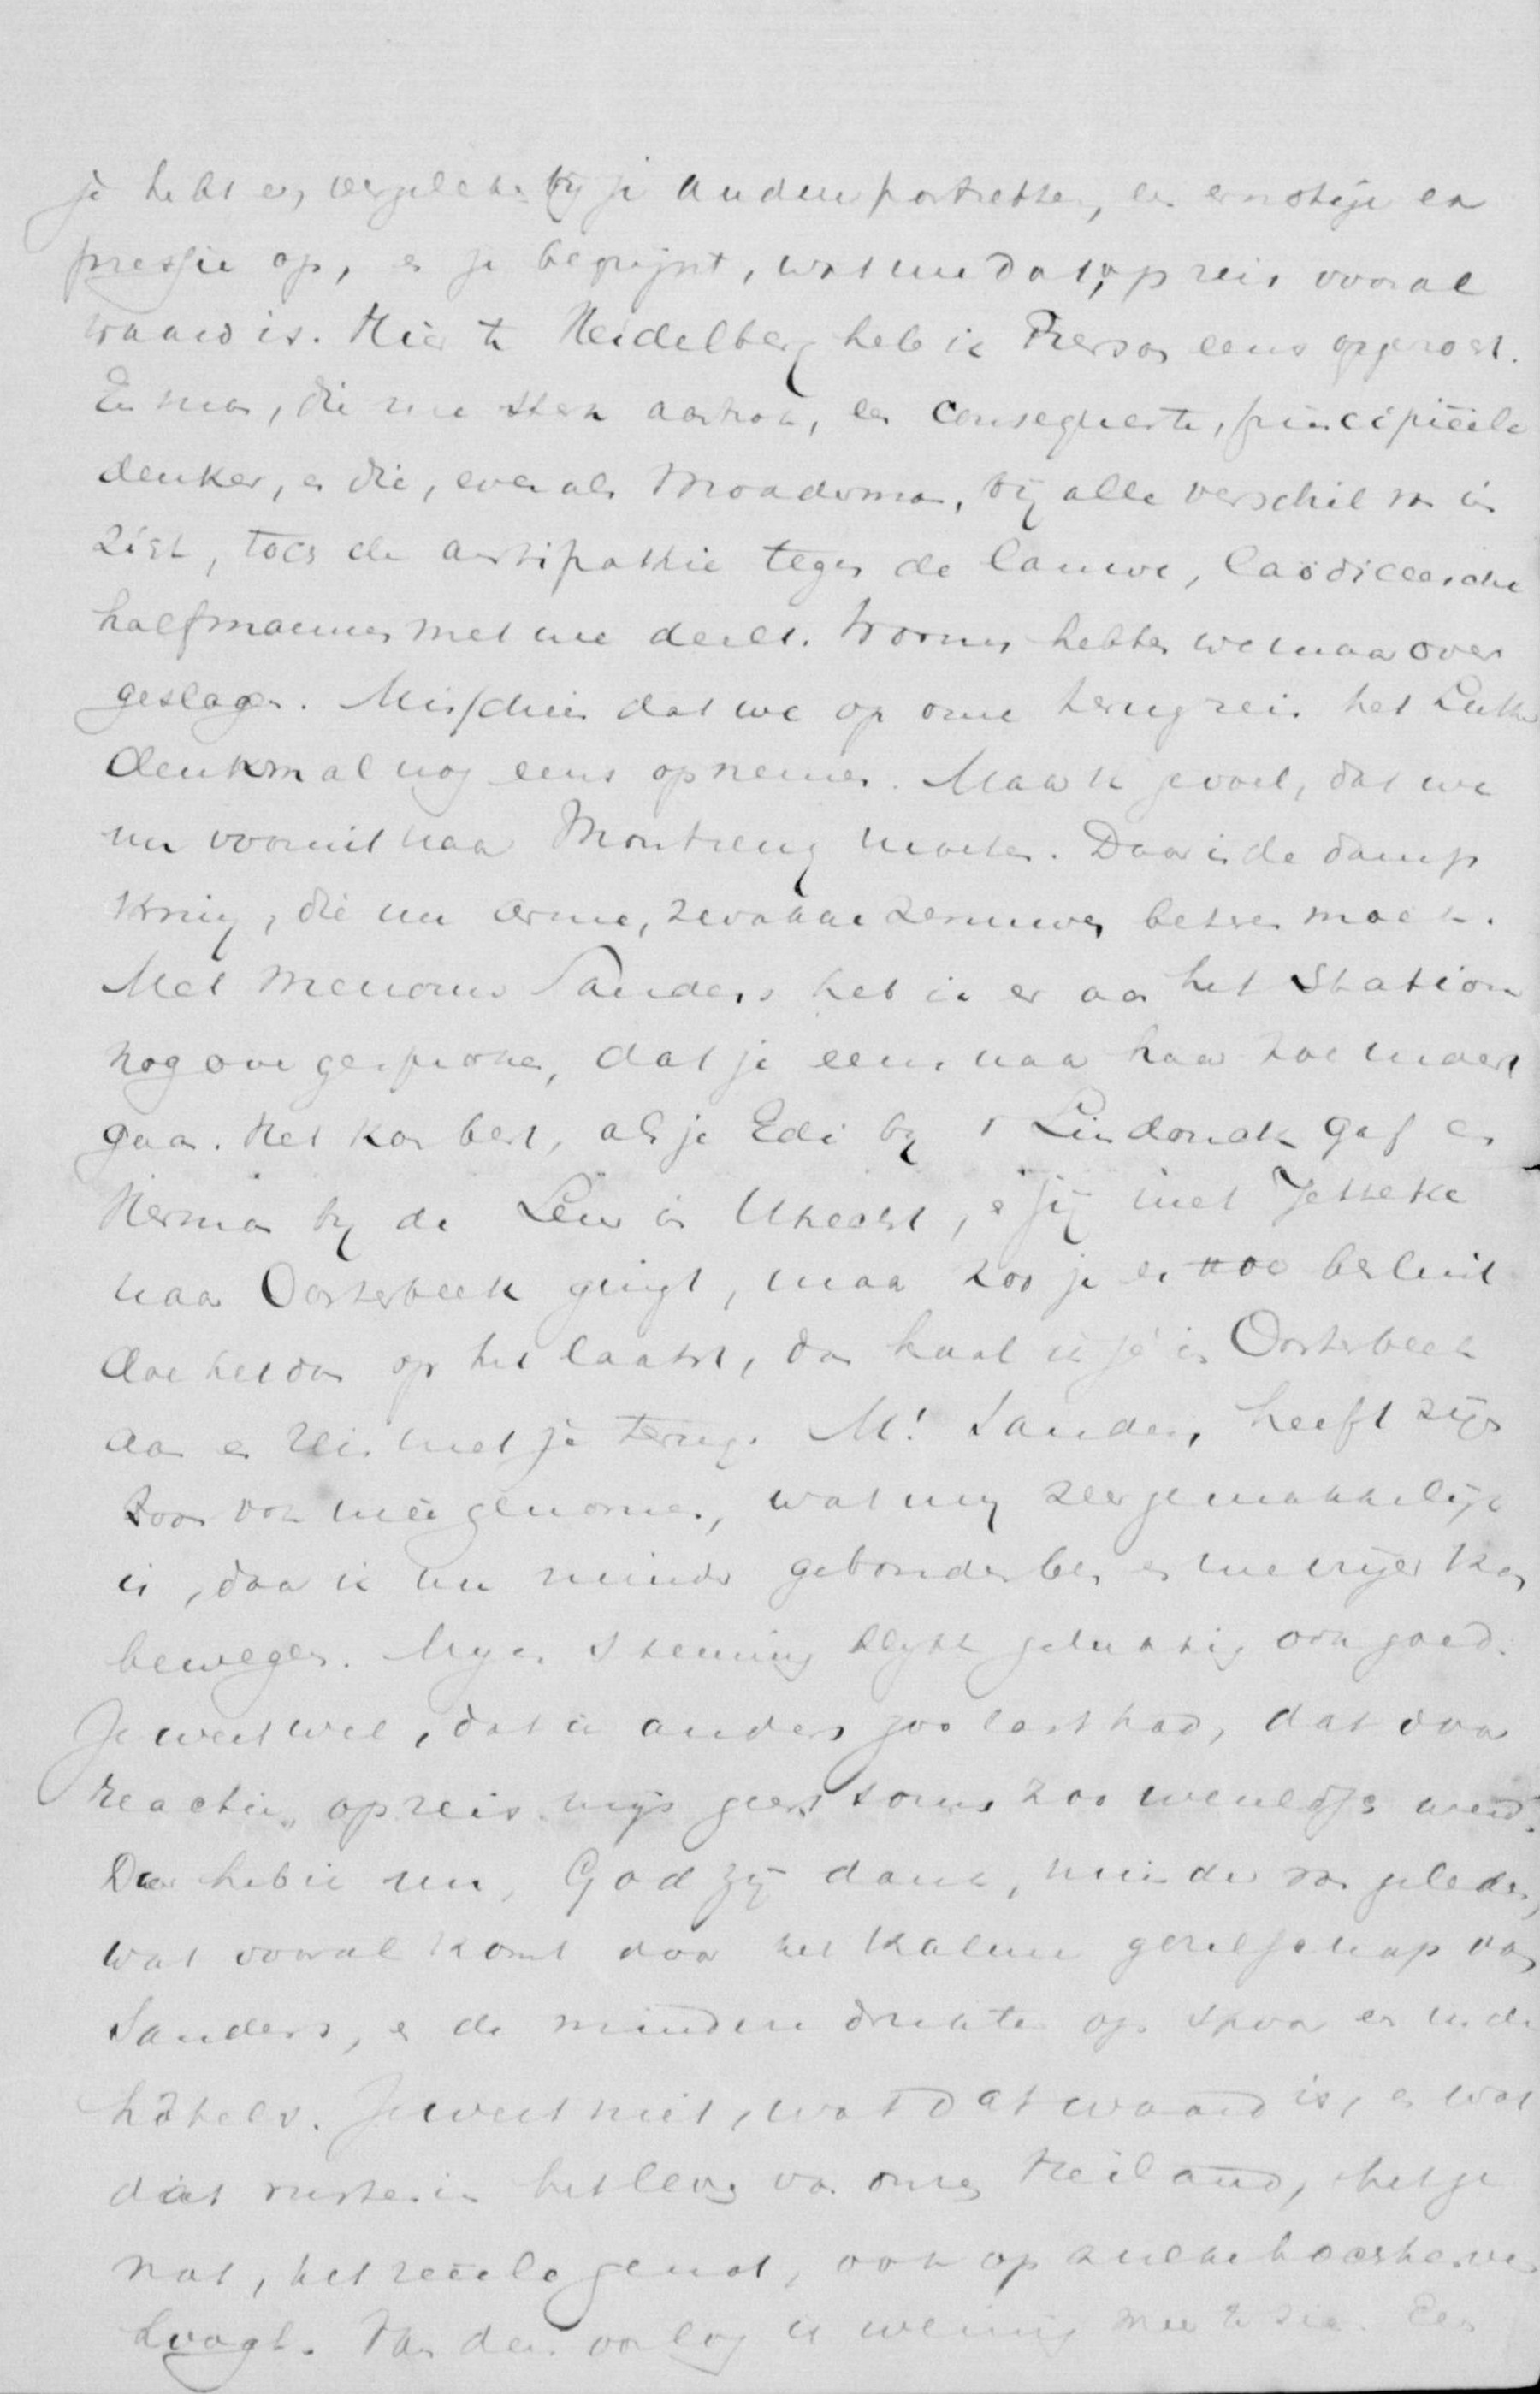 je hebt er, vergeleken bij je andere portretten, een ernstige ex
pressie op, en je begrijpt, wat me dat, op reis vooral
waard is. Hier te Heidelberg heb ik Pierson eens opgezocht.
Een man, die me sterk aantrok, een consequente, principiëele
denker, en die, even als Moadsman, bij alle verschil van in
zicht, toch de antipathie tegen de lauwe, laodiceesche
halfmannen met me deelt. Worms hebben we maar over
geslagen. Misschien dat we op onze terugreis het Luther
denkmal nog eens opnemen. Maar ik gevoel, dat we
nu vooruit naar Montreux moeten. Daar is de damp
kring, die nu arme, zwakke zenuwen beter maakt.
Met Mevrouw Sanders heb ik er aan het station
nog over gesproken, dat je eens naar haar toe moest
gaan. Het kan best, als je Edi bij Lindonck gaf en
Herman bij de Leeu in Utrecht, en jij met Jetteke
naar Oosterbeek gingt, maar zoo je er toe besluit
doe het dan op het laatst, dan haal ik je in Oosterbeek
aan en reis met je terug. Mr. Sanders heeft zijn
zoon ook meêgenomen, wat mij zeer gemakkelijk
is, daar ik nu minder gebonden ben en me vrijer kan
bewegen. Mijn stemming blijft gelukkig ook goed.
Je weet wel, dat ik anders zoo last had, dat door
reactie, op reis mijn geest soms zoo wereldsch werd.
Daar heb ik nu, God zij dank, minder van geleden,
wat vooral komt door het kalme gezelschap van
Sanders, en de mindere drukte op spoor en in de
hôtels. Je weet niet, wat dat waard is, en wat
dat rusten in het leven van onzen Heiland, het ge
not, het reëele genot, ook op zulke
hoogt. Van den oorlog is weinig meer te zien. Een